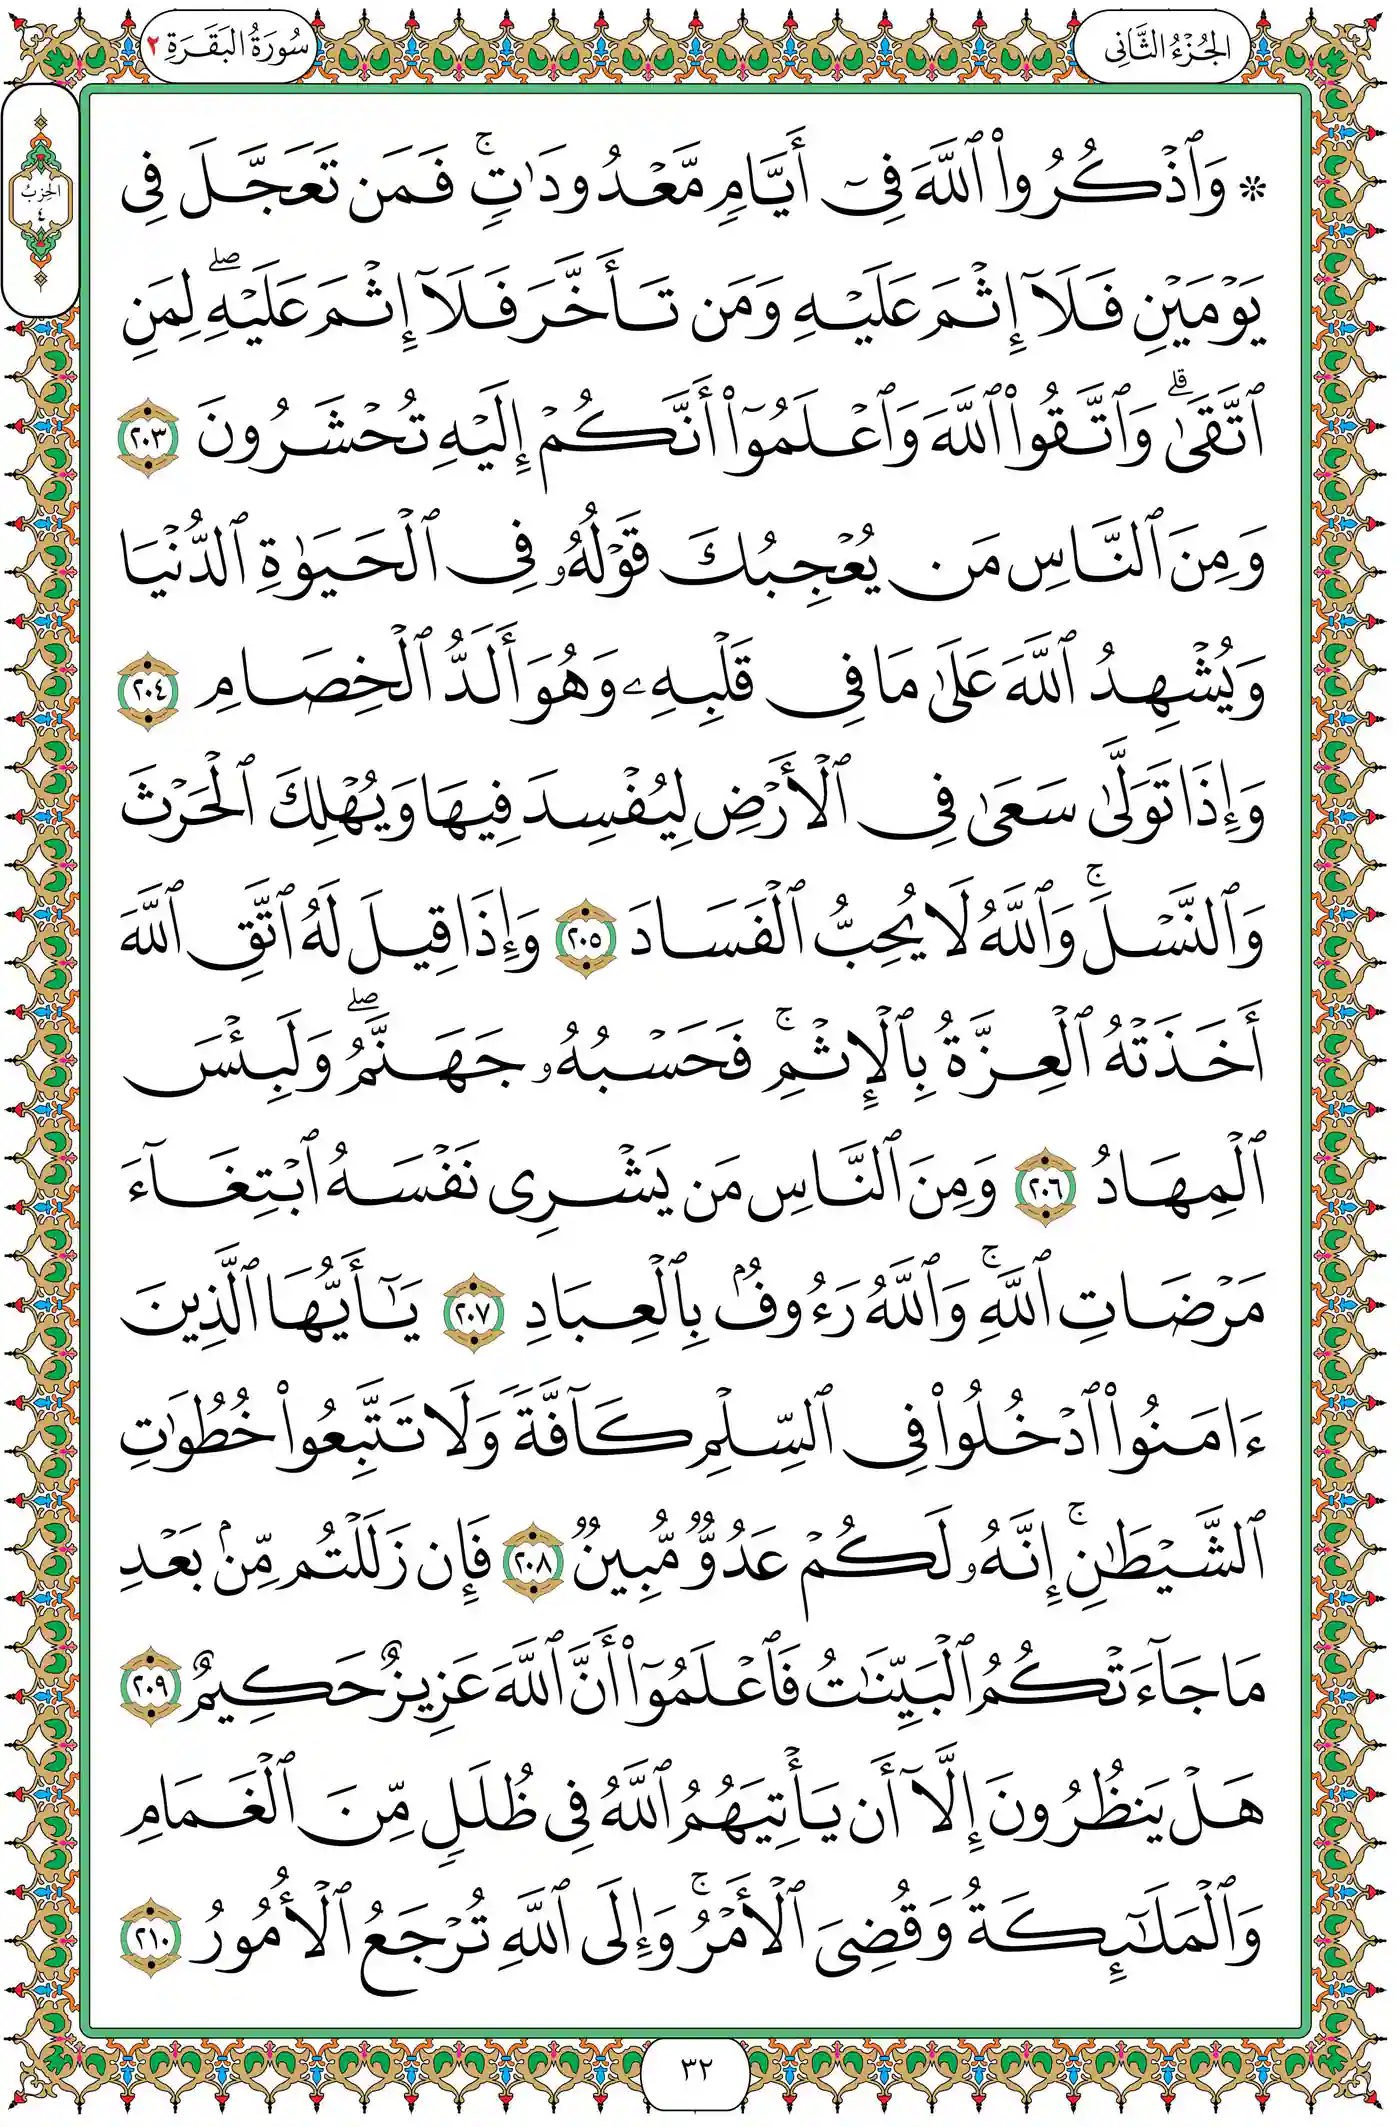 الجُزْءُ الثَّانِي
سُورَةُ البَقَرَةِ ٢
الحِزْبُ
٤
۞ وَٱذۡكُرُواْ ٱللَّهَ فِيٓ أَيَّامٖ مَّعۡدُودَٰتٖۚ فَمَن تَعَجَّلَ فِي
يَوۡمَيۡنِ فَلَآ إِثۡمَ عَلَيۡهِ وَمَن تَأَخَّرَ فَلَآ إِثۡمَ عَلَيۡهِۖ لِمَنِ
ٱتَّقَىٰۗ وَٱتَّقُواْ ٱللَّهَ وَٱعۡلَمُوٓاْ أَنَّكُمۡ إِلَيۡهِ تُحۡشَرُونَ ٢٠٣
وَمِنَ ٱلنَّاسِ مَن يُعۡجِبُكَ قَوۡلُهُۥ فِي ٱلۡحَيَوٰةِ ٱلدُّنۡيَا
وَيُشۡهِدُ ٱللَّهَ عَلَىٰ مَا فِي قَلۡبِهِۦ وَهُوَ أَلَدُّ ٱلۡخِصَامِ ٢٠٤
وَإِذَا تَوَلَّىٰ سَعَىٰ فِي ٱلۡأَرۡضِ لِيُفۡسِدَ فِيهَا وَيُهۡلِكَ ٱلۡحَرۡثَ
وَٱلنَّسۡلَۚ وَٱللَّهُ لَا يُحِبُّ ٱلۡفَسَادَ ٢٠٥ وَإِذَا قِيلَ لَهُ ٱتَّقِ ٱللَّهَ
أَخَذَتۡهُ ٱلۡعِزَّةُ بِٱلۡإِثۡمِۚ فَحَسۡبُهُۥ جَهَنَّمُۖ وَلَبِئۡسَ
ٱلۡمِهَادُ ٢٠٦ وَمِنَ ٱلنَّاسِ مَن يَشۡرِي نَفۡسَهُ ٱبۡتِغَآءَ
مَرۡضَاتِ ٱللَّهِۚ وَٱللَّهُ رَءُوفُۢ بِٱلۡعِبَادِ ٢٠٧ يَٰٓأَيُّهَا ٱلَّذِينَ
ءَامَنُواْ ٱدۡخُلُواْ فِي ٱلسِّلۡمِ كَآفَّةٗ وَلَا تَتَّبِعُواْ خُطُوَٰتِ
ٱلشَّيۡطَٰنِۚ إِنَّهُۥ لَكُمۡ عَدُوّٞ مُّبِينٞ ٢٠٨ فَإِن زَلَلۡتُم مِّنۢ بَعۡدِ
مَا جَآءَتۡكُمُ ٱلۡبَيِّنَٰتُ فَٱعۡلَمُوٓاْ أَنَّ ٱللَّهَ عَزِيزٌ حَكِيمٌ ٢٠٩
هَلۡ يَنظُرُونَ إِلَّآ أَن يَأۡتِيَهُمُ ٱللَّهُ فِي ظُلَلٖ مِّنَ ٱلۡغَمَامِ
وَٱلۡمَلَٰٓئِكَةُ وَقُضِيَ ٱلۡأَمۡرُۚ وَإِلَى ٱللَّهِ تُرۡجَعُ ٱلۡأُمُورُ ٢١٠
٣٢